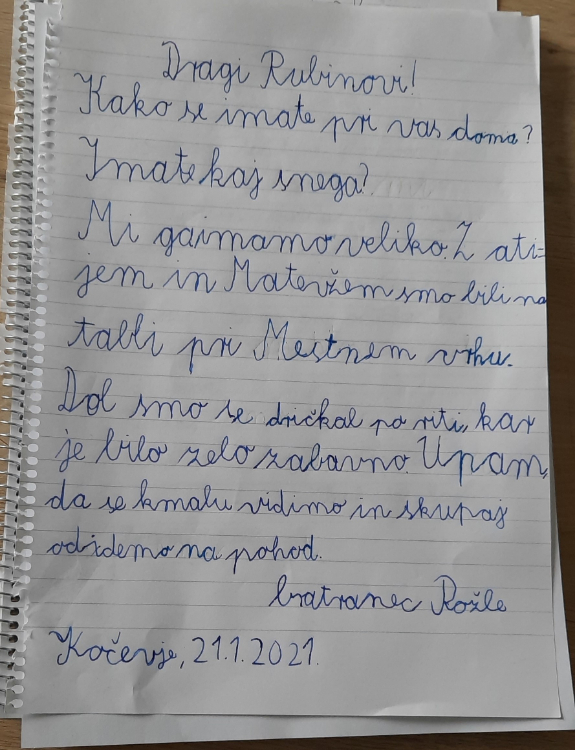 Dragi Rubinovi!
Kako se imate pri vas doma?
Imate kaj snega?
Mi ga imamo veliko. Z ati-
jem in Matevžem smo bili na
tabli pri Mestnem vrhu.
Dol smo se dričkal po riti, kar
je bilo zelo zabavno. Upam,
da se kmalu vidimo in skupaj
odidemo na pohod.
bratranec Rožle
Kočevje, 21.1.2021.